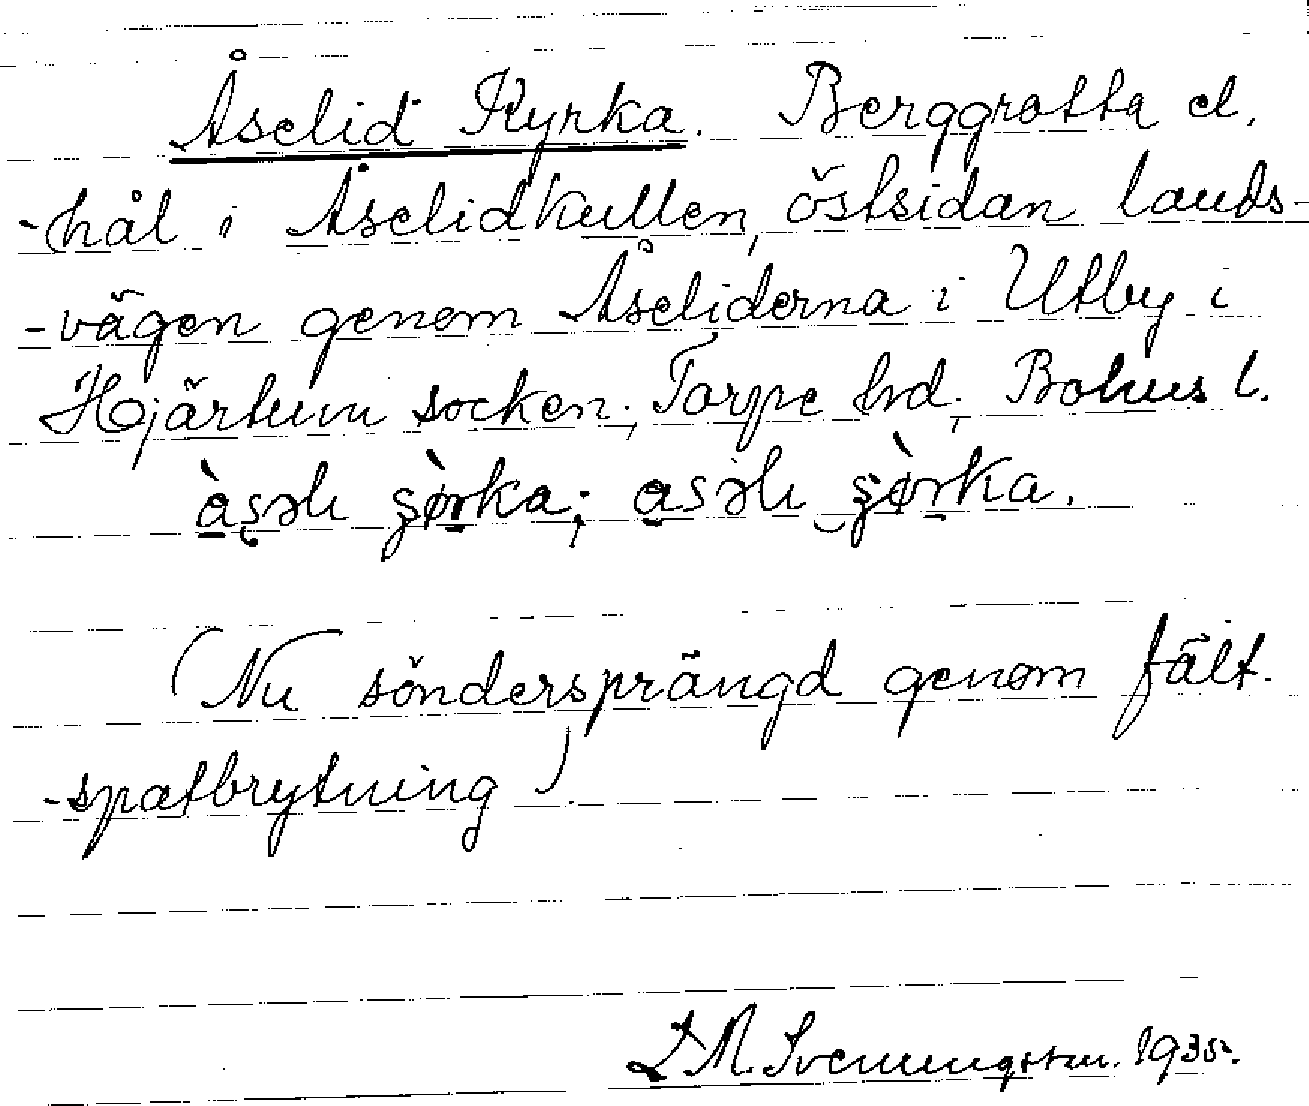 Åselid Kyrka. Berggrotta el.
-hål i Åselidkullen, östsidan lands-
-vägen genom Åseliderna i Utby i
Hjärtum socken; Torpe hd; Bohus l.
(Nu söndersprängd genom fält-
-spatbrytning)
Svenungsson. 1935.